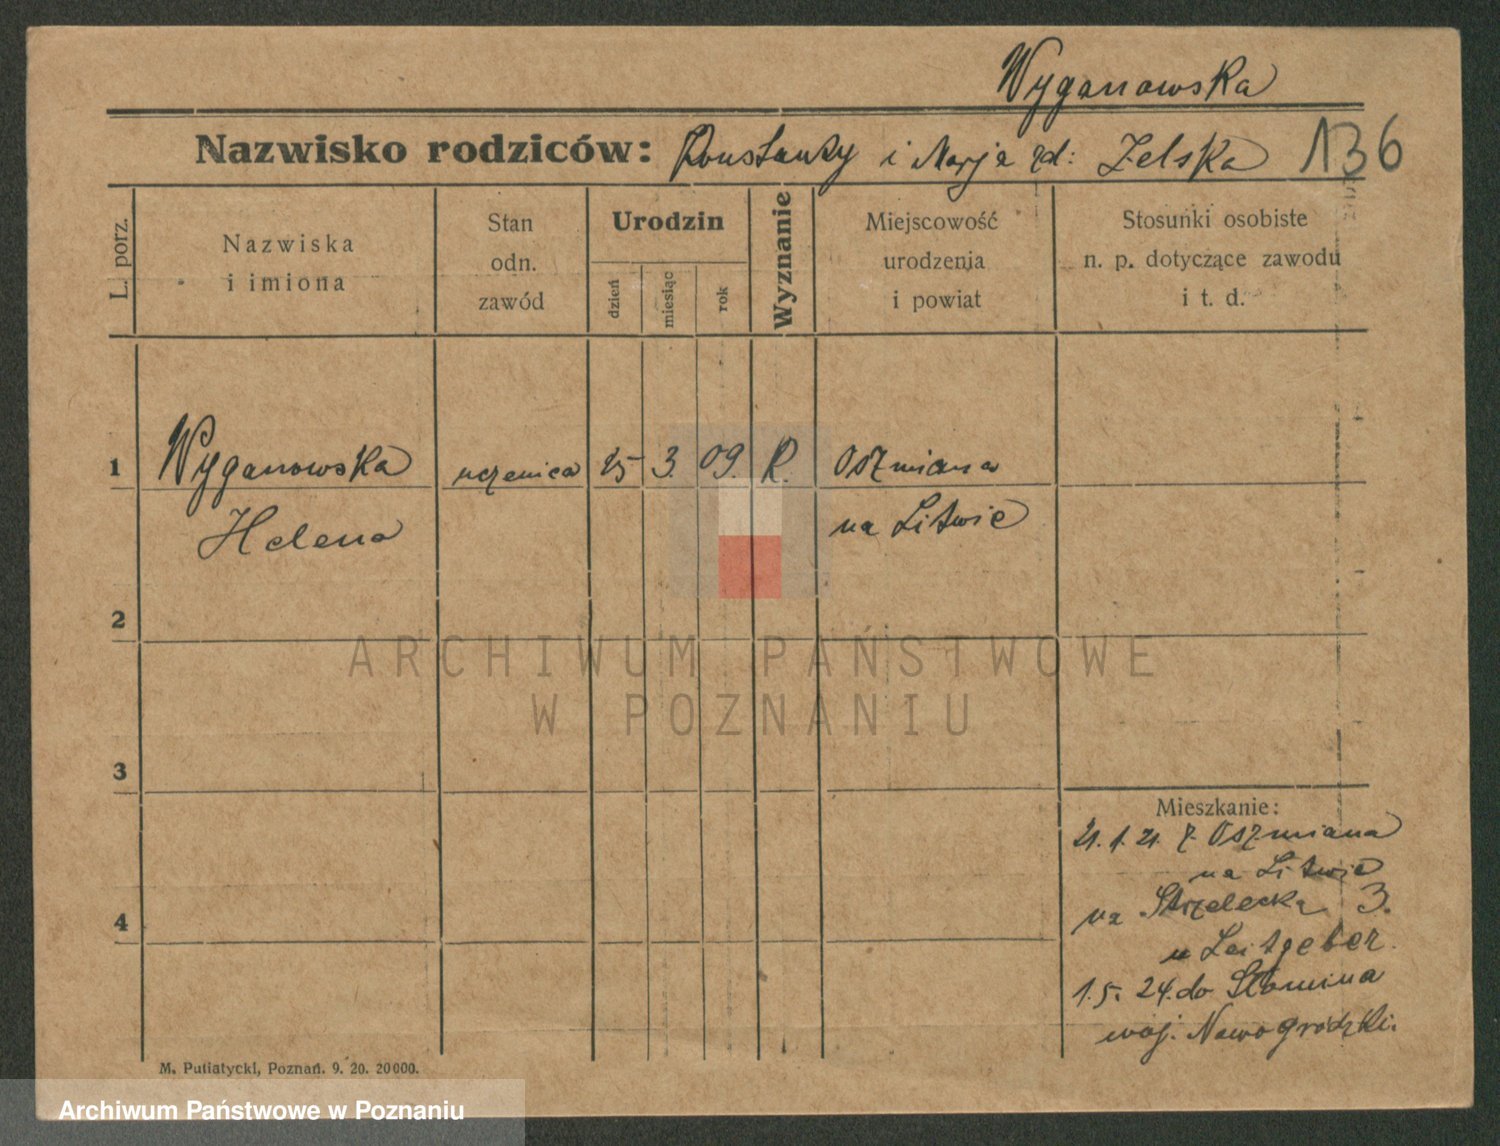 Wyganowska
Nazwisko rodziców: Konstanty i Marja rd: Zelska 136
L. porz.
Nazwiska
i imiona
Stan
odn.
zawód
Urodzin
dzień
miesiąc
rok
Wyznanie
Miejscowość
urodzenia
i powiat
Stosunki osobiste
n. p. dotyczące zawodu
i t. d.
1 Wyganowska uczenica 25 3. 09. R. Oszmiana
Helena na Litwie
2
3
4
Mieszkanie:
21.1.21. z Oszmiana
na Litwie
na Strzelecką 3.
u Leitgeber.
1.5. 24. do Słonima
woj. Nowogródzki.
M. Putiatycki, Poznań. 9. 20. 20000.
ARCHIWUM PAŃSTWOWE
W POZNANIU
Archiwum Państwowe w Poznaniu